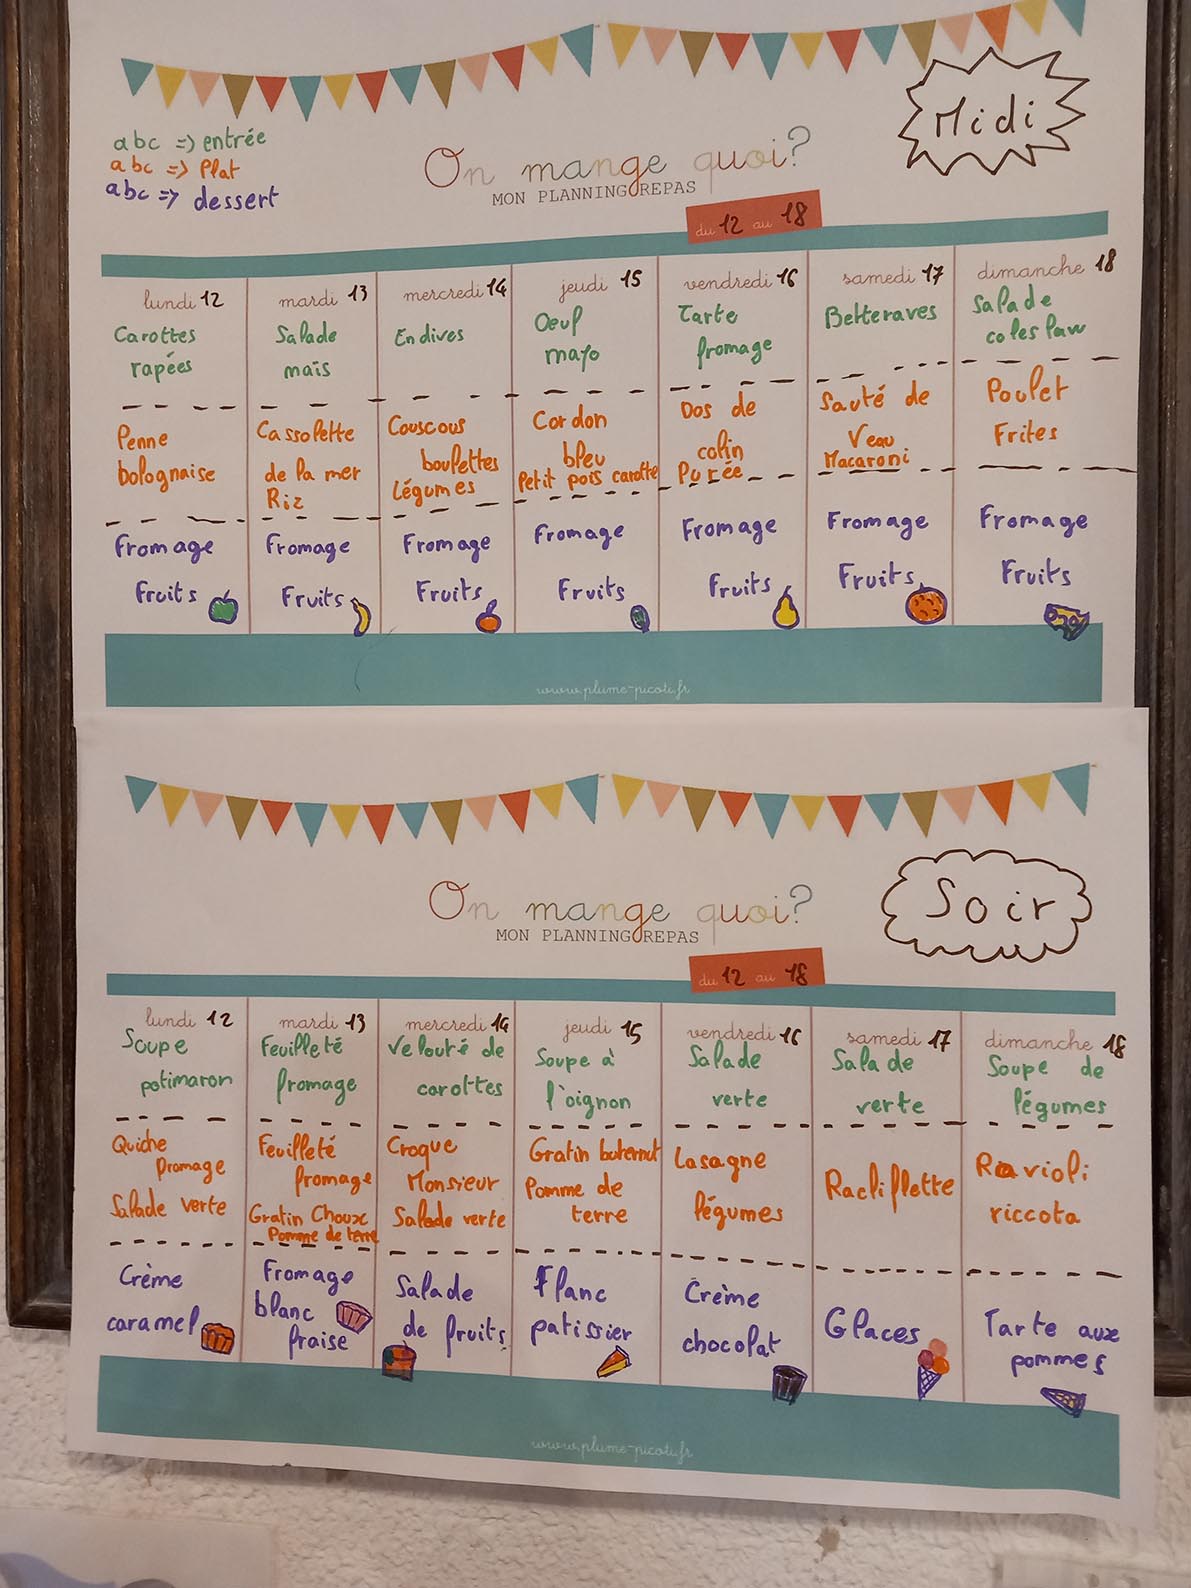 Midi
abc => entrée
abc => Plat
abc => dessert
On mange quoi?
MON PLANNING REPAS
du 12 au 18
lundi 12
Carottes
rapées
Penne
bolognaise
Fromage
Fruits
mardi 13
Salade
maïs
Cassolette
de la mer
Riz
Fromage
Fruits
mercredi 14
Endives
Couscous
boulettes
Légumes
Fromage
Fruits
jeudi 15
Oeuf
mayo
Cordon
bleu
Petit pois carotte
Fromage
Fruits
vendredi 16
Tarte
fromage
Dos de
colin
Purée
Fromage
Fruits
samedi 17
Betteraves
Sauté de
Veau
Macaroni
Fromage
Fruits
dimanche 18
Salade
coleslaw
Poulet
Frites
Fromage
Fruits
www.plume-picoti.fr
Soir
On mange quoi?
MON PLANNING REPAS
du 12 au 18
lundi 12
Soupe
potimaron
Quiche
fromage
Salade verte
Crème
caramel
mardi 13
Feuilleté
fromage
Feuilleté
fromage
Gratin Choux
Pomme de terre
Fromage
blanc
fraise
mercredi 14
Velouté de
carottes
Croque
Monsieur
Salade verte
Salade
de fruits
jeudi 15
Soupe à
l'oignon
Gratin buternut
Pomme de
terre
Flanc
patissier
vendredi 16
Salade
verte
Lasagne
légumes
Crème
chocolat
samedi 17
Salade
verte
Racliflette
Glaces
dimanche 18
Soupe de
légumes
Ravioli
riccota
Tarte aux
pommes
www.plume-picoti.fr